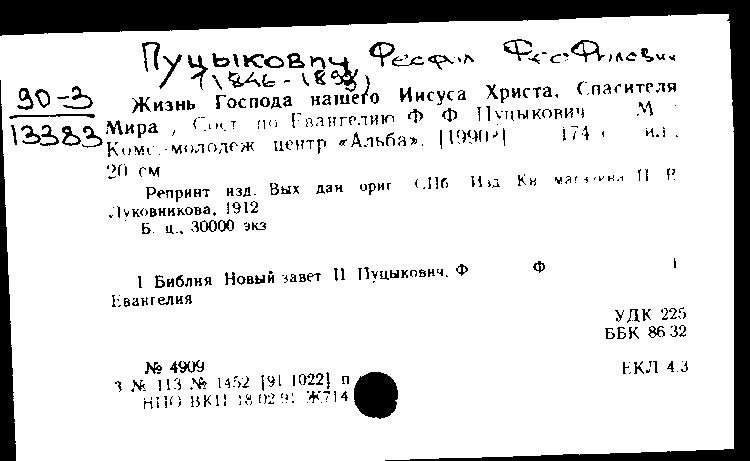 Пуцыкович Феофил Феофилович
(1846-1899)
90-3
13383
Жизнь Господа нашего Иисуса Христа, Спасителя
Мира, Сост по Евангелию Ф Ф Пуцыкович М
Комс.-молодеж центр «Альба», [1990?] 174 с ил.,
20 см
Репринт изд. Вых дан ориг СПб Изд Кн магазина П В
Луковникова, 1912
Б. ц., 30000 экз
1 Библия Новый завет II Пуцыкович, Ф Ф 1
Евангелия
УДК 225
ББК 86 32
№ 4909
ЕКЛ 4.3
3 № 113 № 1452 [91 1022] п
НПО ВКП 18 02 91 Ж714